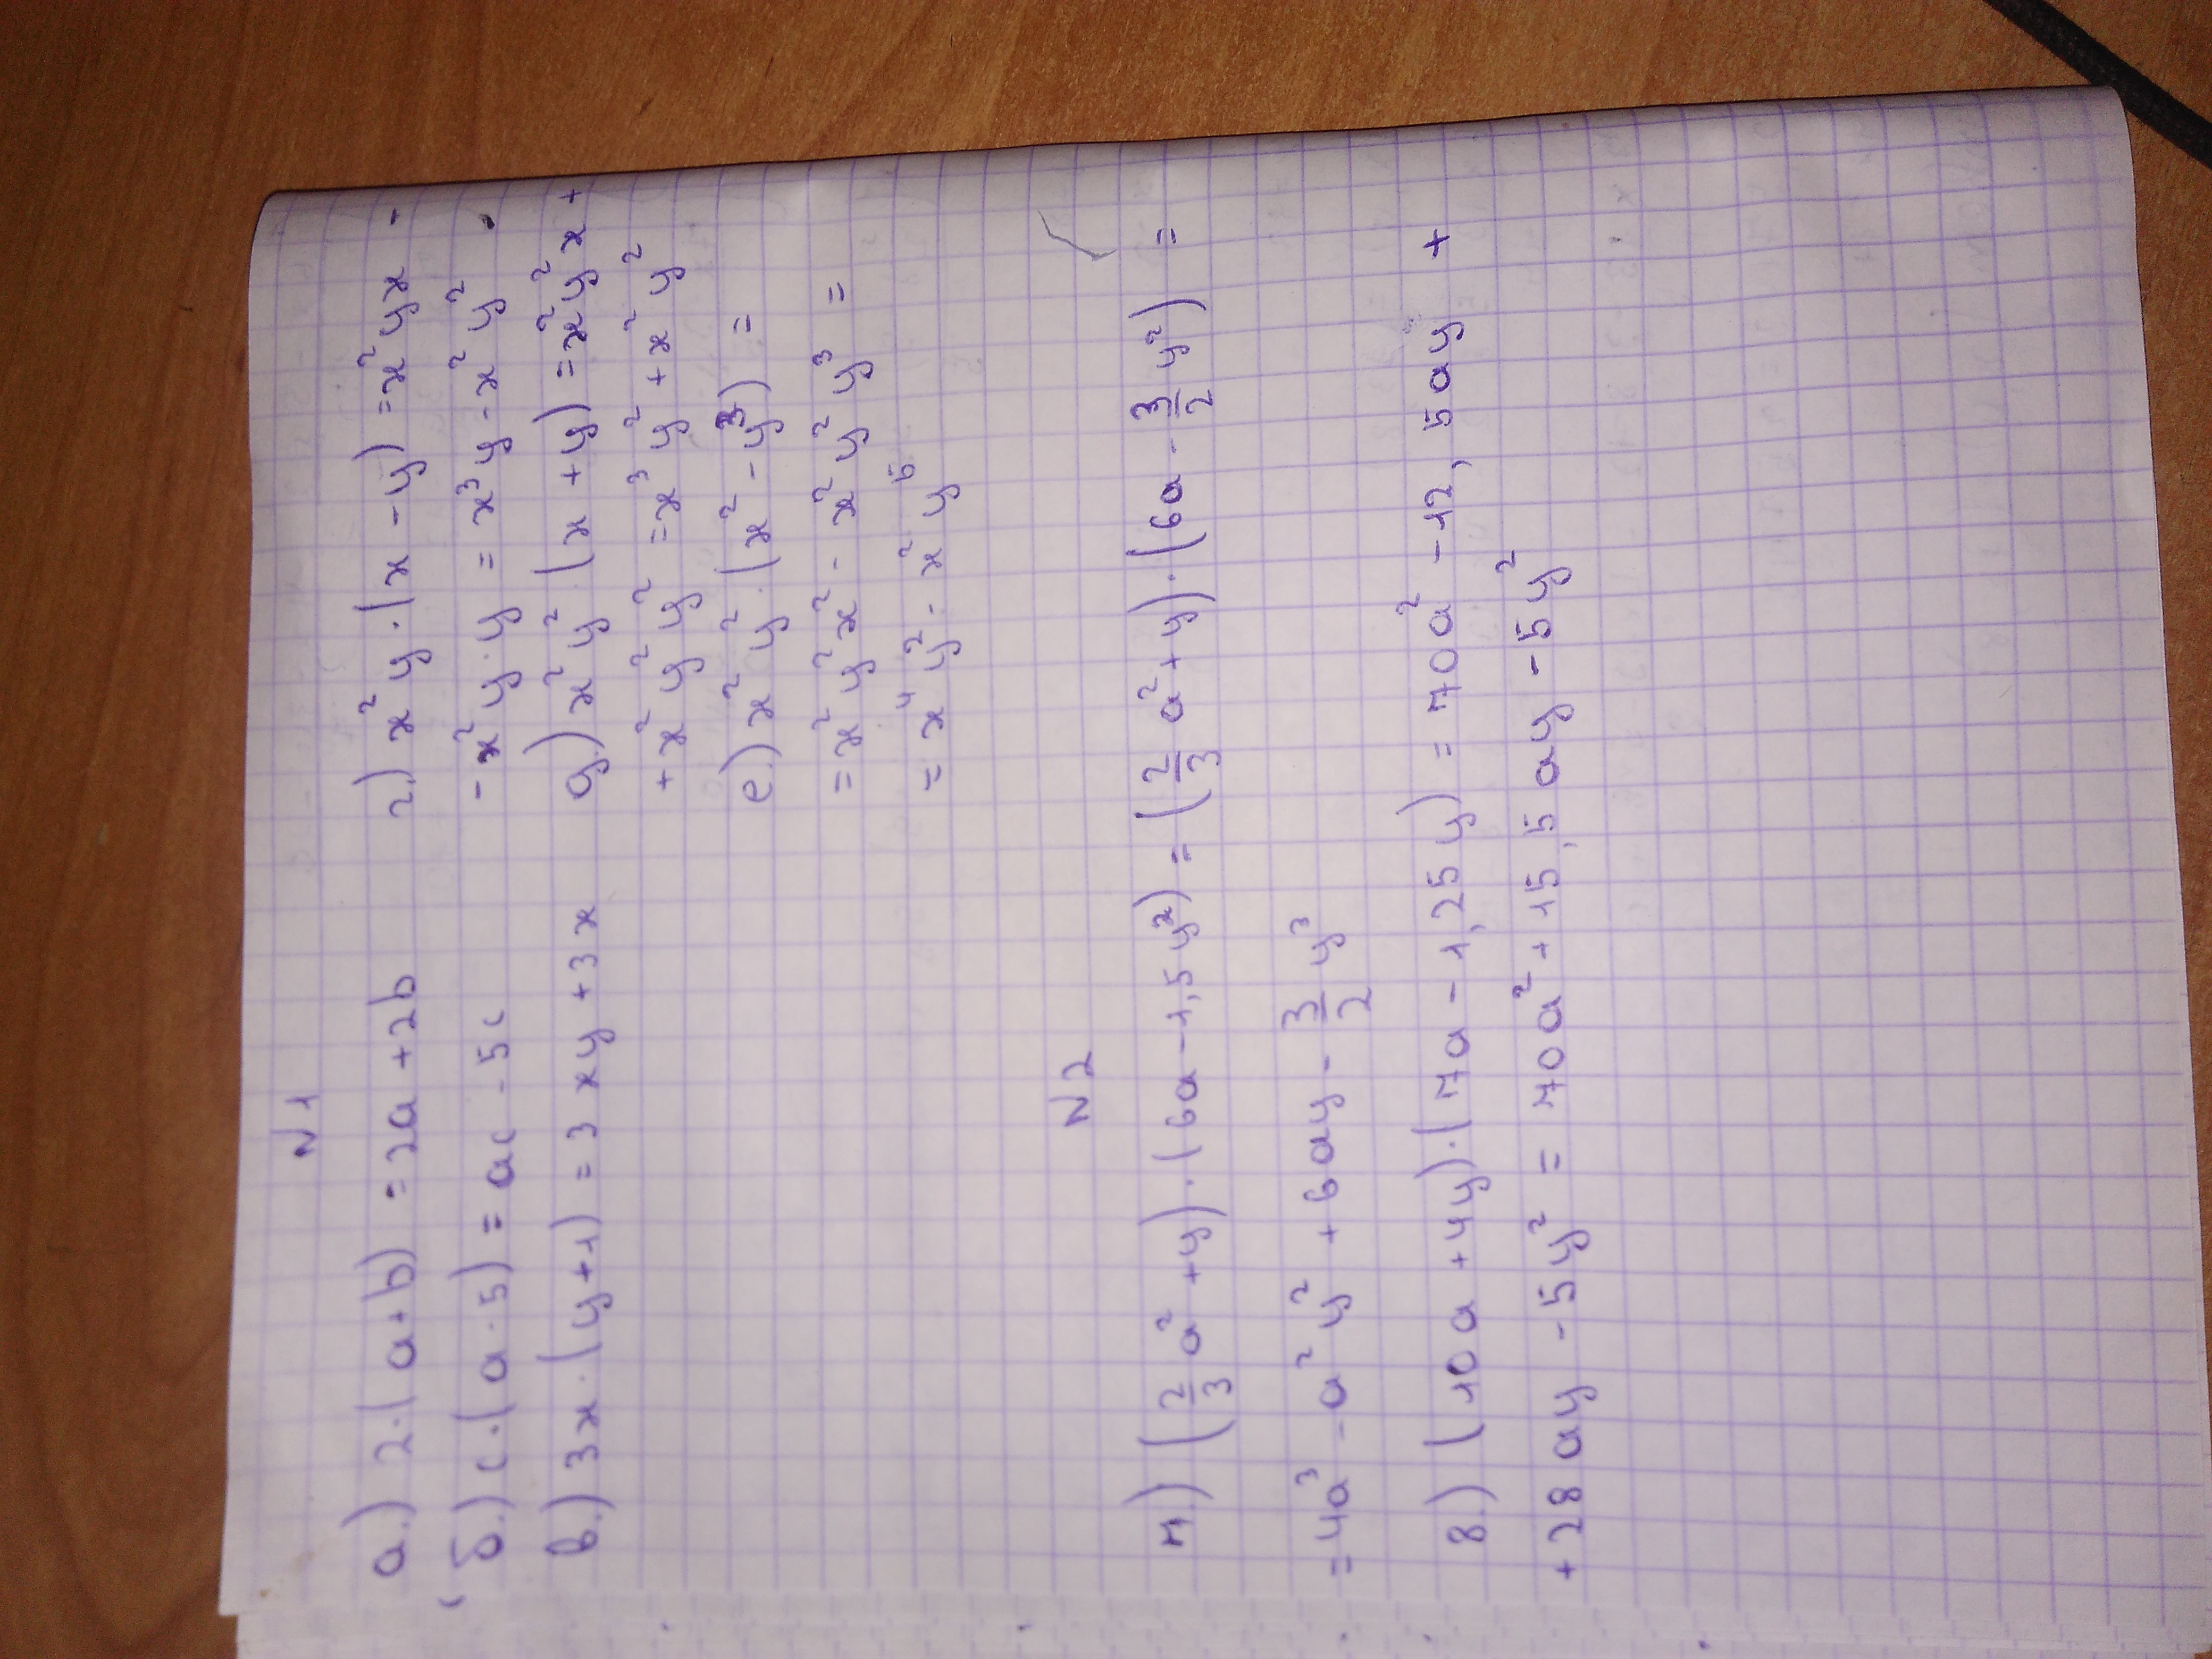 N1
а.) 2·(a+b) = 2a+2b
б.) c·(a-5) = ac-5c
в.) 3x·(y+1) = 3xy+3x
г.) x²y·(x-y) = x²yx -
- x²y·y = x³y - x²y²
д.) x²y²·(x+y) = x²y²x +
+ x²y²y² = x³y² + x²y²
е.) x²y²·(x²-y³) =
= x²y²x² - x²y²y³ =
= x⁴y² - x²y⁵
N2
7.) (2/3 a²+y)·(6a-1,5y²) = (2/3 a²+y)·(6a-3/2 y²) =
= 4a³ - a²y² + 6ay - 3/2 y³
8.) (10a+4y)·(7a-1,25y) = 70a² - 12,5ay +
+ 28ay - 5y² = 70a² + 15,5ay - 5y²